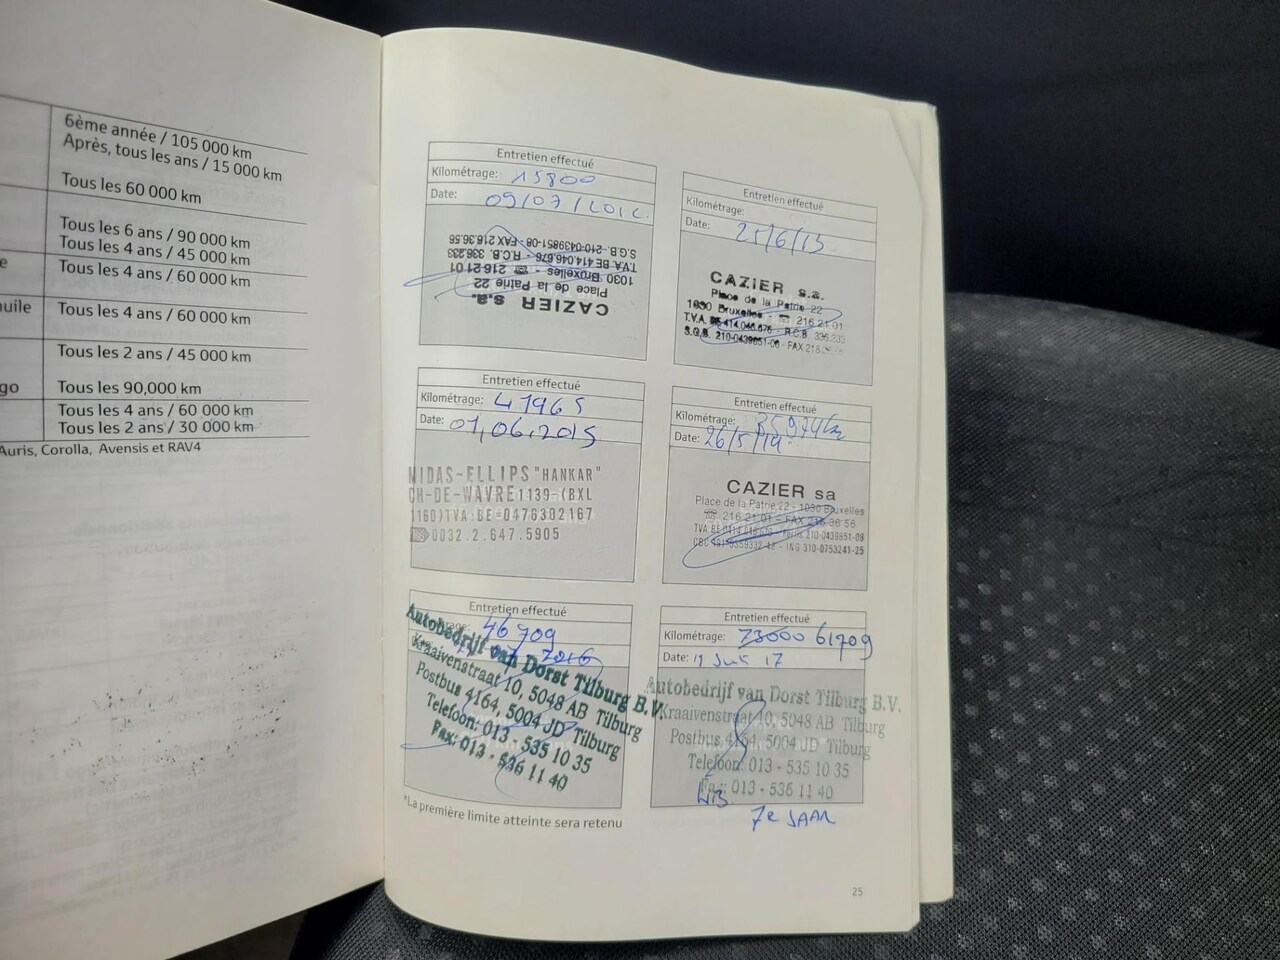 6ème année / 105 000 km
Après, tous les ans / 15 000 km
Tous les 60 000 km
Tous les 6 ans / 90 000 km
Tous les 4 ans / 45 000 km
e
Tous les 4 ans / 60 000 km
uile
Tous les 4 ans / 60 000 km
Tous les 2 ans / 45 000 km
go
Tous les 90,000 km
Tous les 4 ans / 60 000 km
Tous les 2 ans / 30 000 km
Auris, Corolla, Avensis et RAV4
Entretien effectué
Kilométrage: 15800
Date: 09/07/
CAZIER s.a.
Place de la Patrie 22
1030 Bruxelles - ☎ 216 21 01
T.V.A. BE 414.046.676 - R.C.B. 336.233
S.G.B. 210-0439851-08 - FAX 216.36.56
Entretien effectué
Kilométrage:
Date: 25/6/13
CAZIER s.a.
Place de la Patrie 22
1030 Bruxelles - ☎ 216 21 01
T.V.A. BE 414.046.676 - R.C.B. 336.233
S.G.B. 210-0439851-08 - FAX 216
Entretien effectué
Kilométrage: 41965
Date: 01,06.2015
MIDAS-ELLIPS "HANKAR"
CH-DE-WAVRE 1139-(BXL
1160)TVA:BE-0476302167
0032.2.647.5905
Entretien effectué
Kilométrage: 35974 km
Date: 26/5/14
CAZIER sa
Place de la Patrie 22 - 1030 Bruxelles
☎ 216 21 01 - FAX 216 36 56
Entretien effectué
46709
2016
Autobedrijf van Dorst Tilburg B.V.
Kraaivenstraat 10, 5048 AB Tilburg
Postbus 4164, 5004 JD Tilburg
Telefoon: 013 - 535 10 35
Fax: 013 - 536 11 40
Entretien effectué
Kilométrage: 73000 61709
Date: 17
Autobedrijf van Dorst Tilburg B.V.
Kraaivenstraat 10, 5048 AB Tilburg
Postbus 4164, 5004 JD Tilburg
Telefoon: 013 - 535 10 35
Fax: 013 - 536 11 40
7e JAAR
*La première limite atteinte sera retenu
25